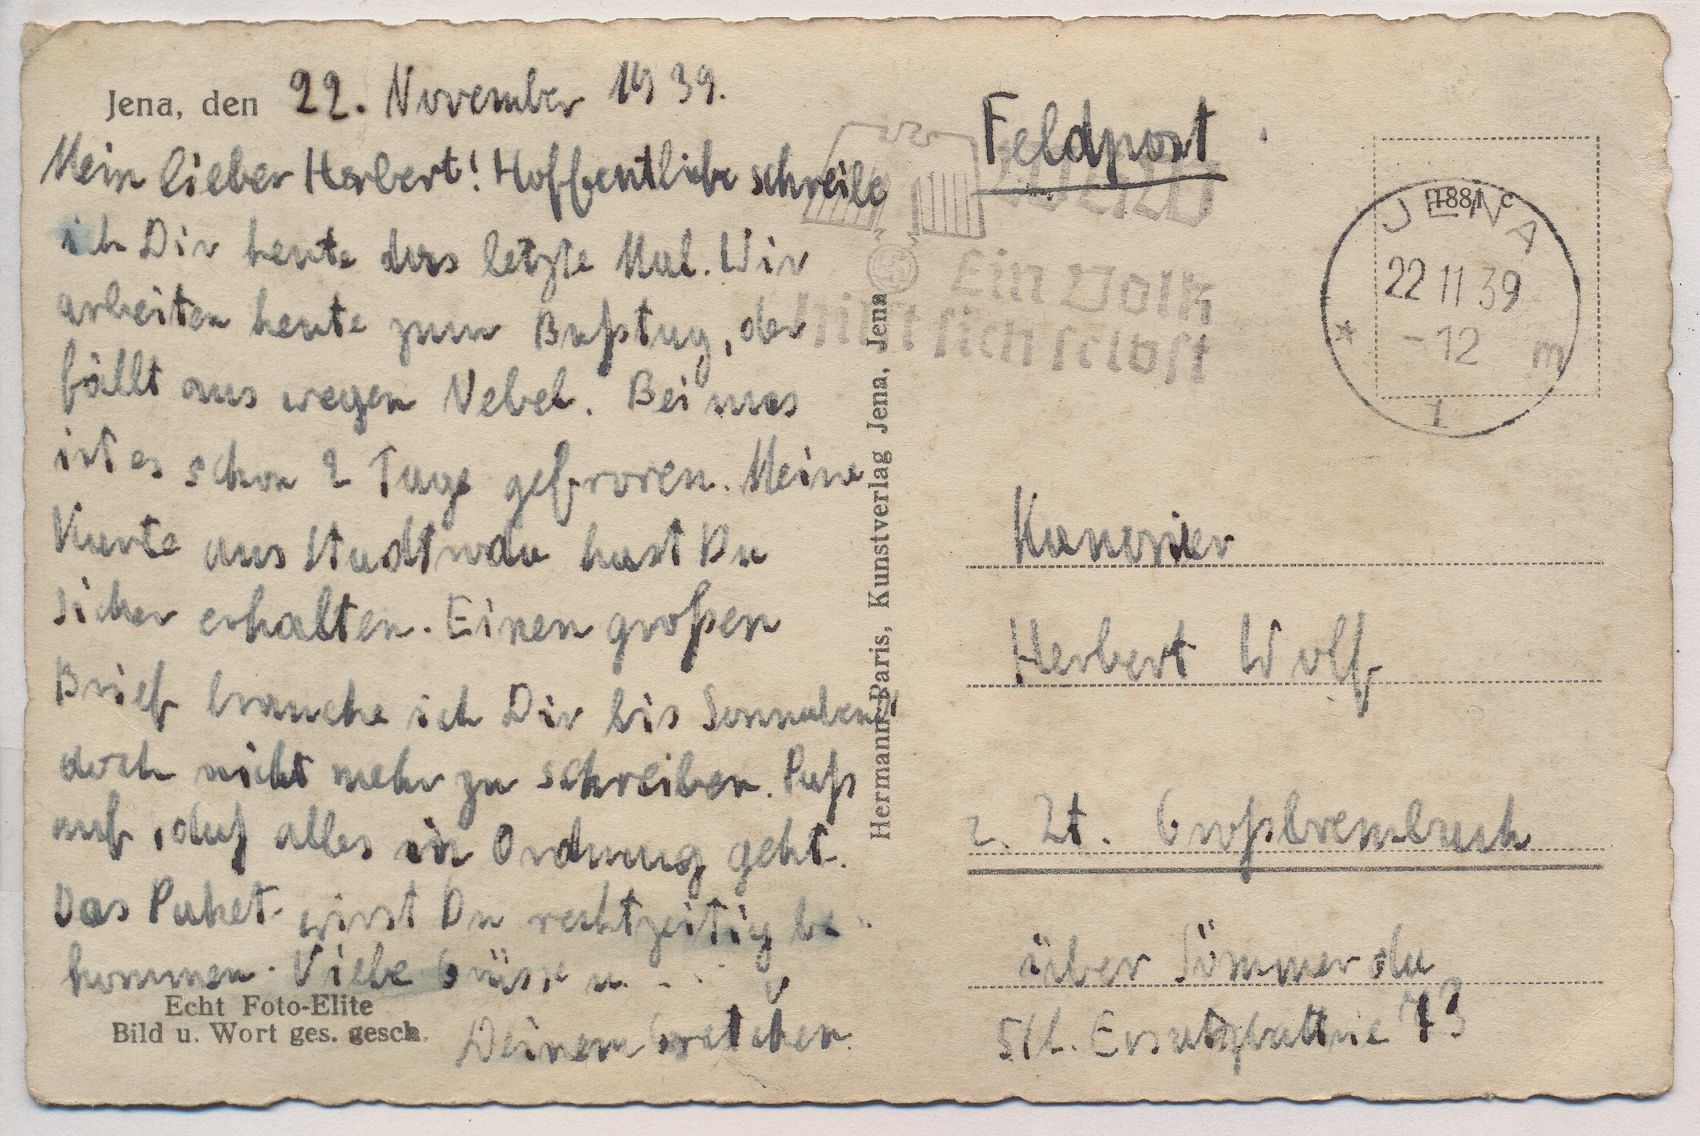 Jena, den 22. November 1939.
Mein lieber Herbert! Hoffentlich schreibe
ich Dir heute das letzte Mal. Wir
arbeiten heute zum Bußtag, der
fällt aus wegen Nebel. Bei uns
ist es schon 2 Tage gefroren. Meine
Karte aus Stadtroda hast Du
sicher erhalten. Einen großen
Brief brauche ich Dir bis Sonnabend
doch nicht mehr zu schreiben. Paß
auf, daß alles in Ordnung geht.
Das Paket wirst Du rechtzeitig be-
kommen. Viele Grüsse u. . . .
Deinem Gretchen.
Echt Foto-Elite
Bild u. Wort ges. gesch.
Hermann Paris, Kunstverlag Jena, Jena
Feldpost
Ein Volk
hilft sich selbst
1881 c
JENA
22 11 39
-12
* m
1
Kanonier
Herbert Wolf
z. Zt. Großbrembach
über Sömmerda
Stl. Ersatzbattrie 73